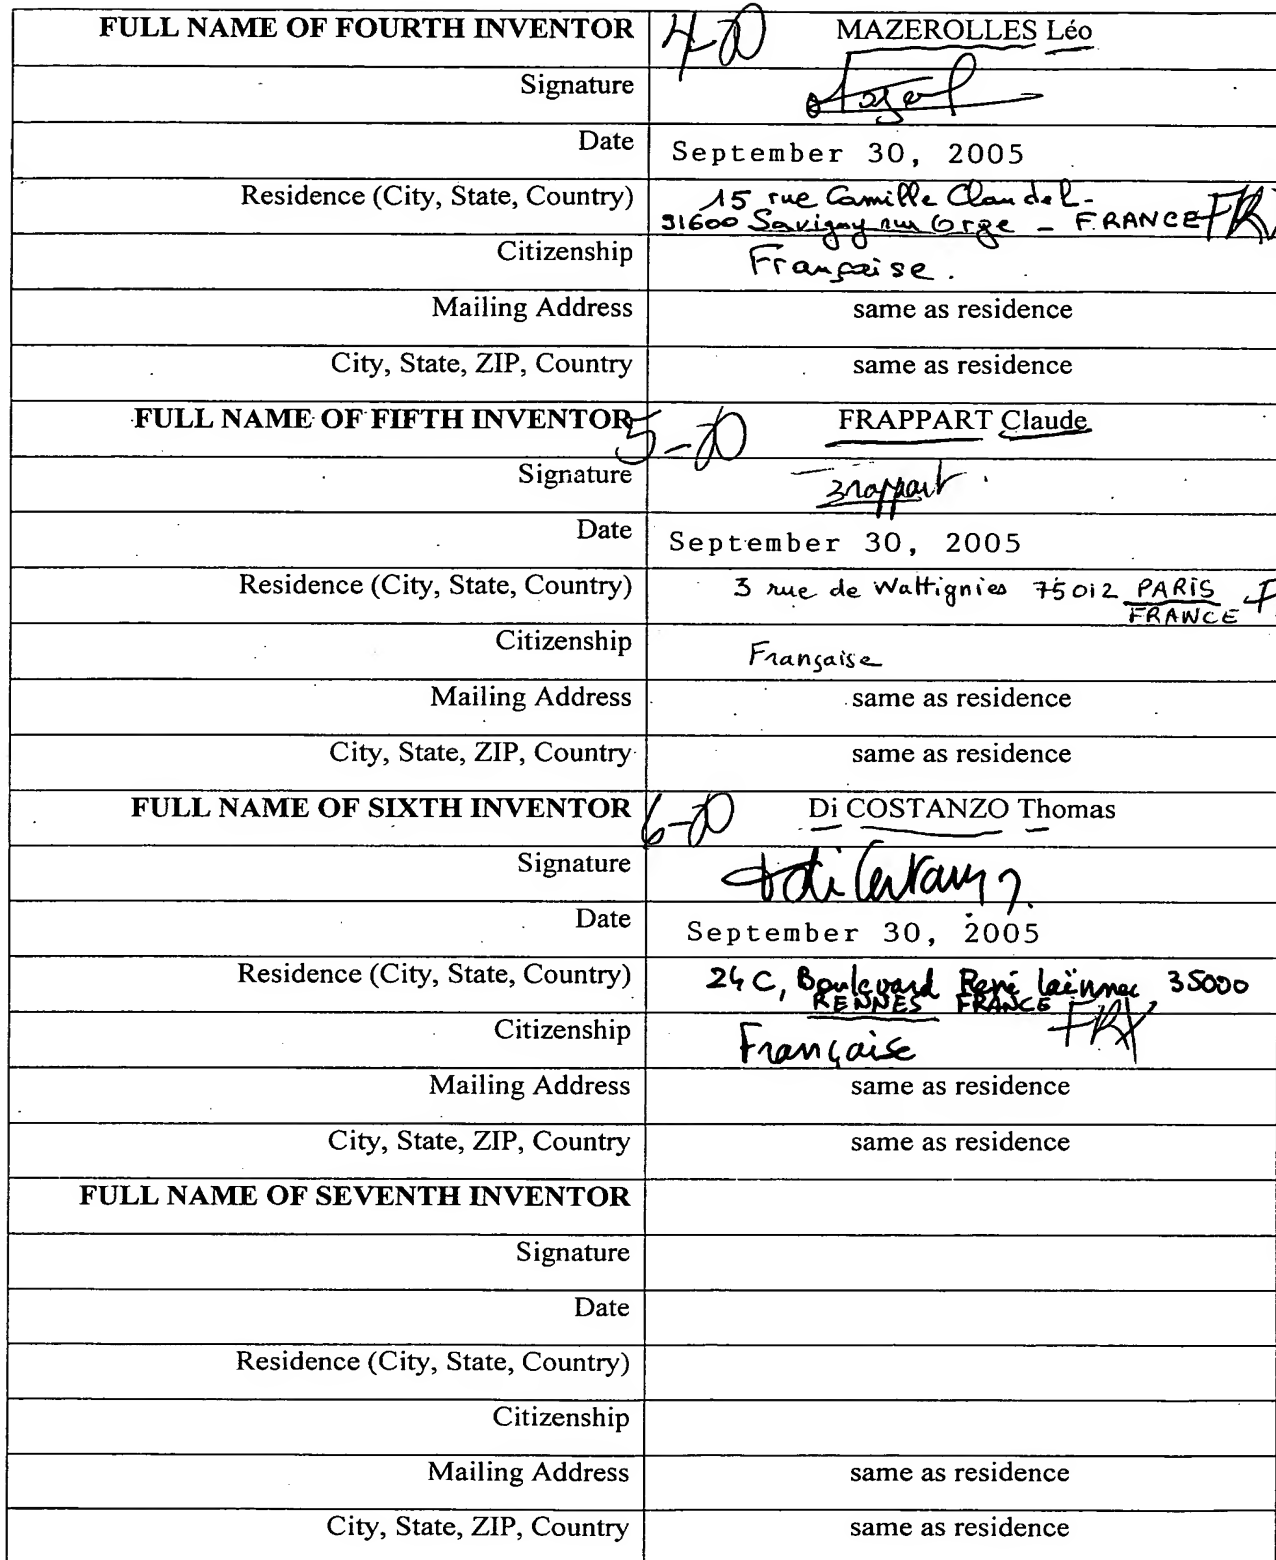 FULL NAME OF FOURTH INVENTOR 4-00 MAZEROLLES Léo
Signature
Date September 30, 2005
Residence (City, State, Country) 15 rue Camille Claudel-
91600 Savigny sur Orge - FRANCE FRX
Citizenship Française.
Mailing Address same as residence
City, State, ZIP, Country same as residence
FULL NAME OF FIFTH INVENTOR 5-00 FRAPPART Claude
Signature Frappart
Date September 30, 2005
Residence (City, State, Country) 3 rue de Wattignies 75012 PARIS
FRANCE
Citizenship Française
Mailing Address same as residence
City, State, ZIP, Country same as residence
FULL NAME OF SIXTH INVENTOR 6-00 Di COSTANZO Thomas
Signature
Date September 30, 2005
Residence (City, State, Country) 24 C, Boulevard René laënnec 35000
RENNES FRANCE FRX
Citizenship Française
Mailing Address same as residence
City, State, ZIP, Country same as residence
FULL NAME OF SEVENTH INVENTOR
Signature
Date
Residence (City, State, Country)
Citizenship
Mailing Address same as residence
City, State, ZIP, Country same as residence